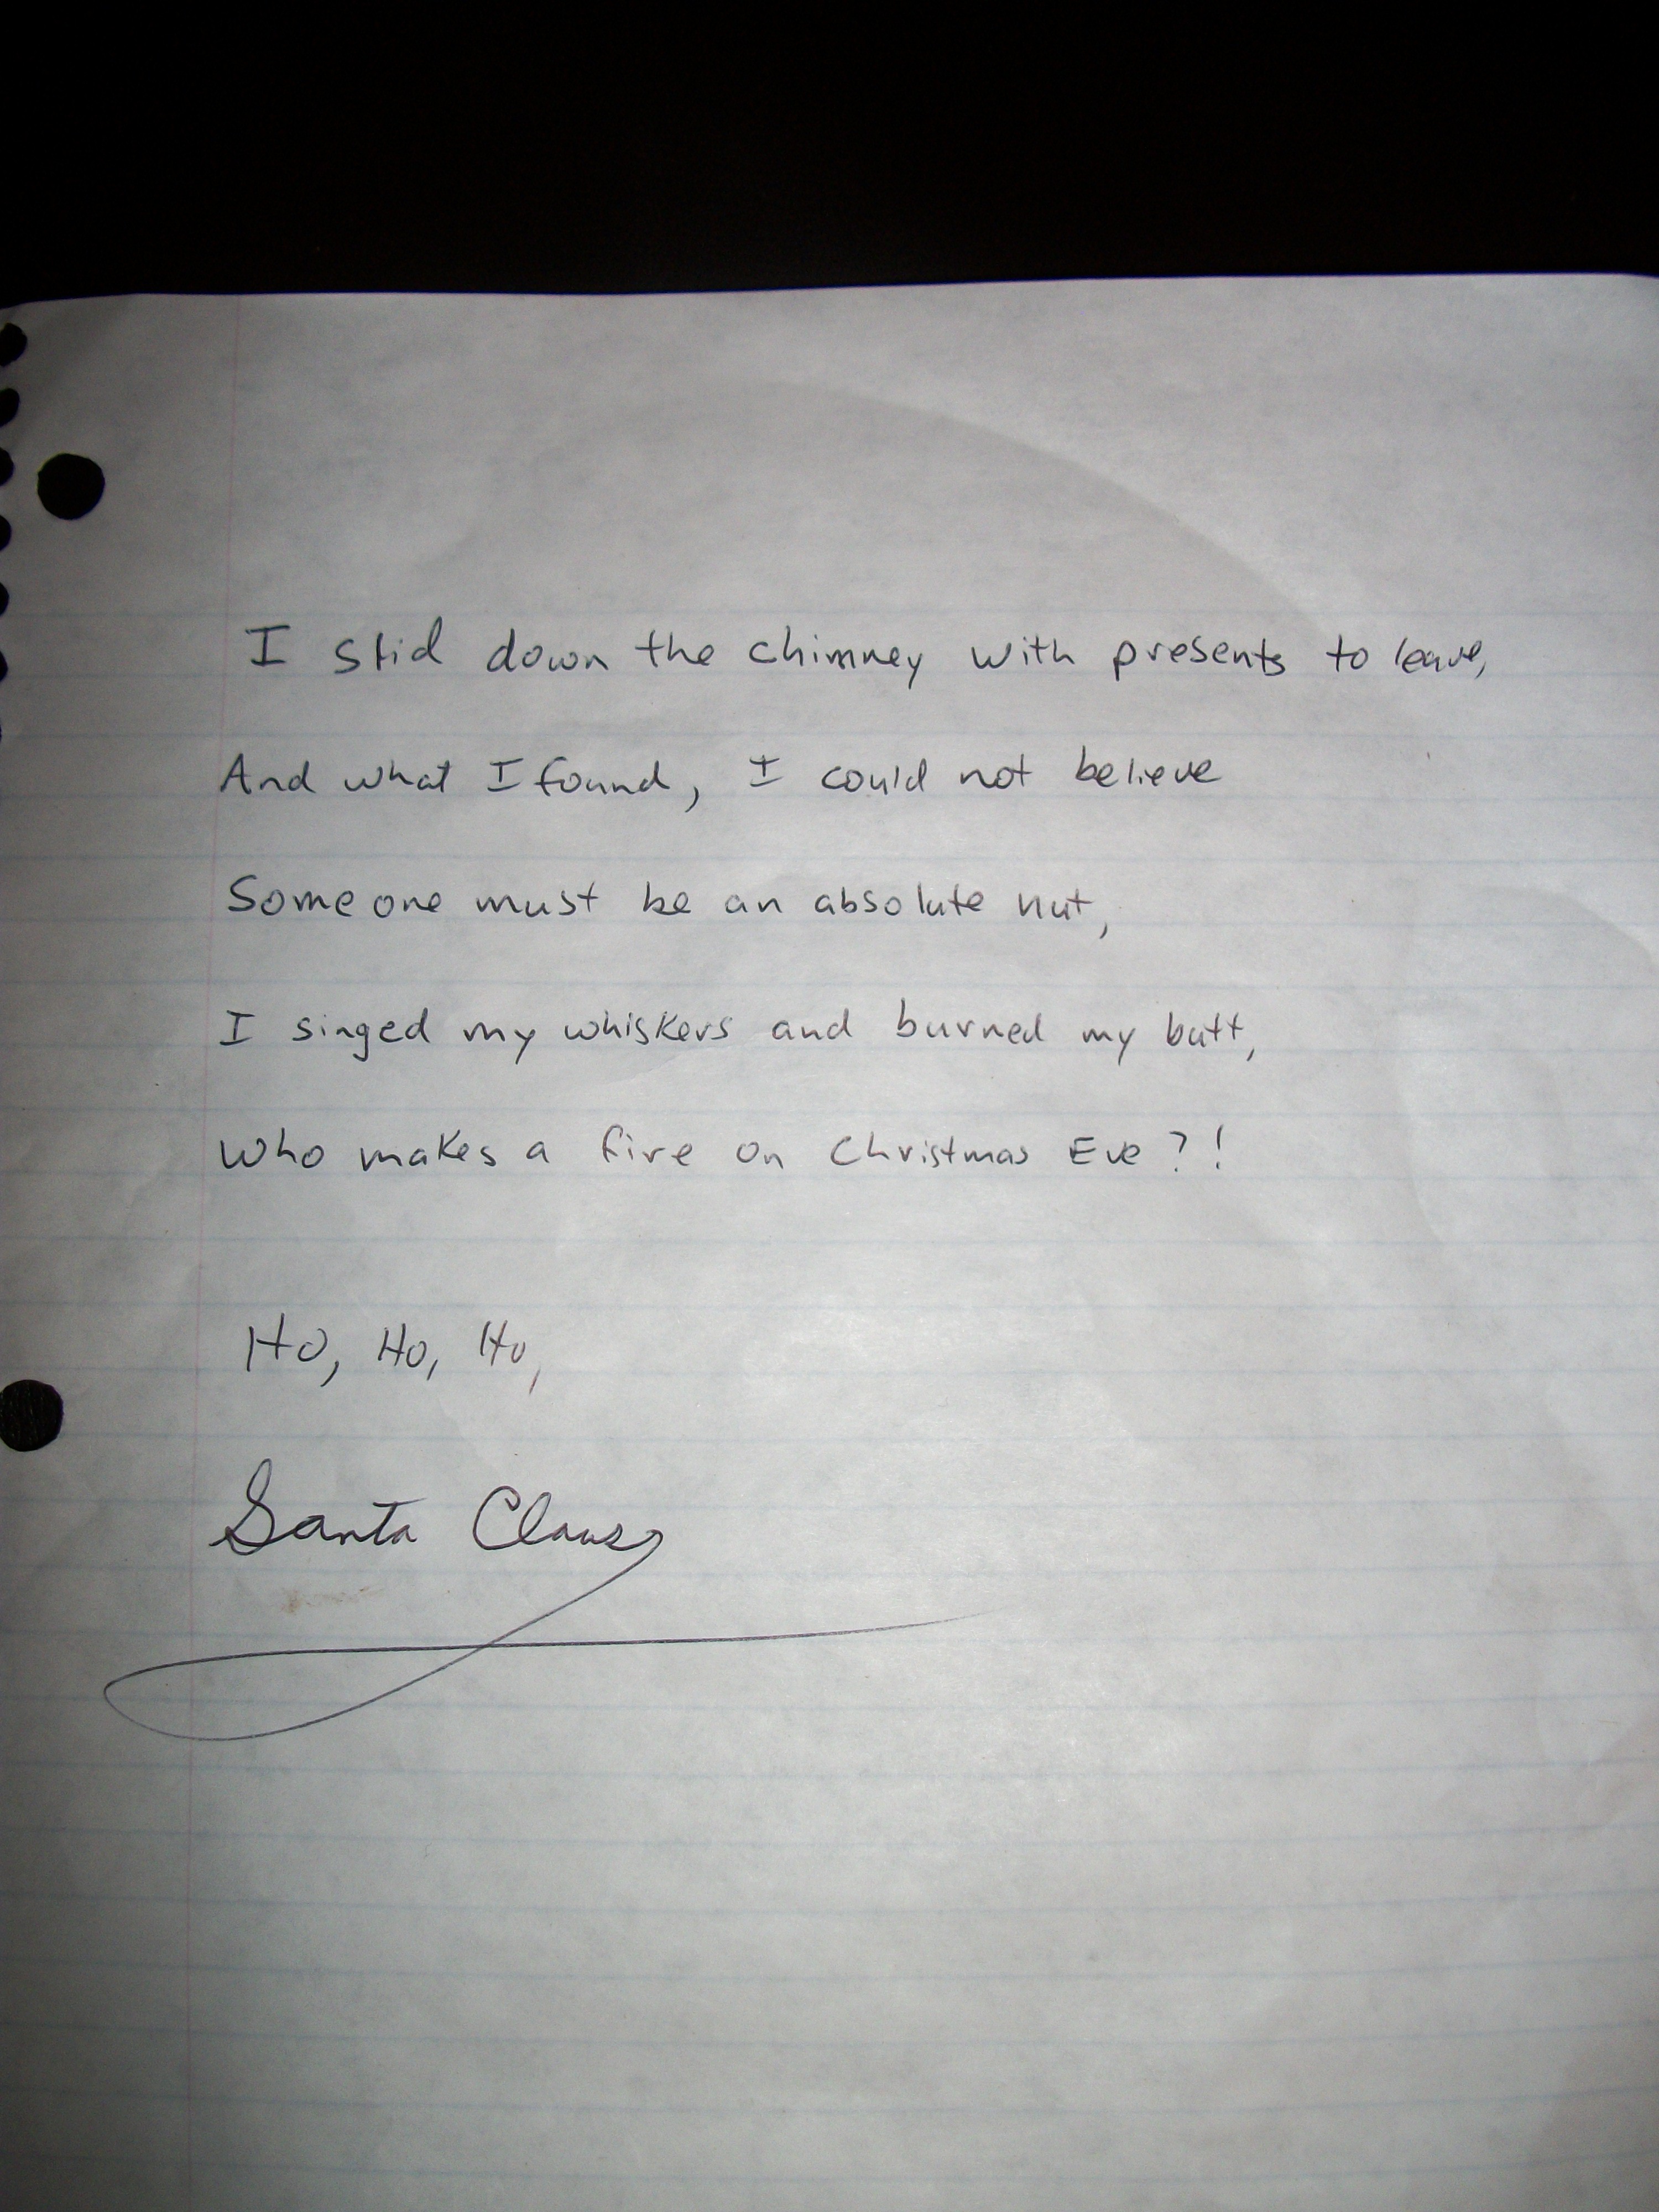 I slid down the chimney with presents to leave,
And what I found, I could not believe
Someone must be an absolute nut,
I singed my whiskers and burned my butt,
Who makes a fire on Christmas Eve?!
Ho, Ho, Ho,
Santa Claus